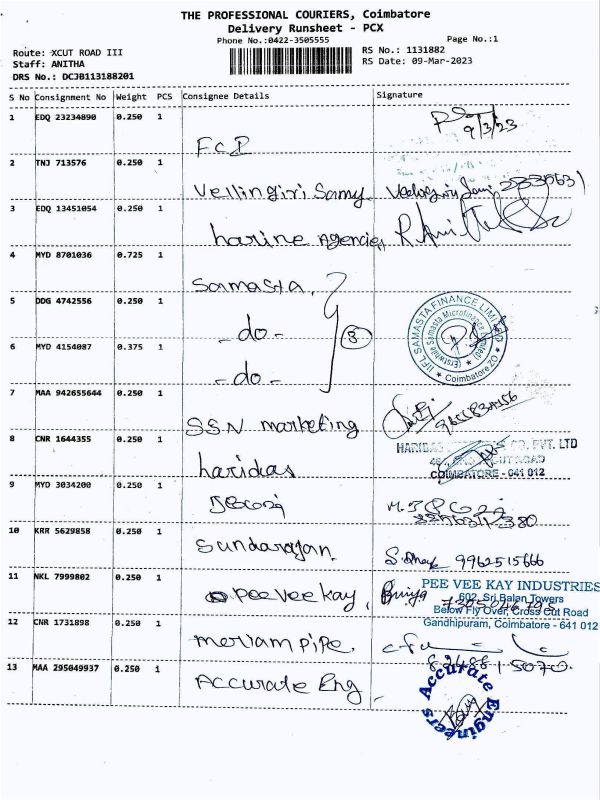 THE PROFESSIONAL COURIERS, Coimbatore
Delivery Runsheet - PCX
Phone No.:0422-3505555
Page No.:1
Route: XCUT ROAD III
RS No.: 1131882
Staff: ANITHA
RS Date: 09-Mar-2023
DRS No.: DCJB113188201
S No Consignment No Weight PCS Consignee Details Signature
1 EDQ 23234890 0.250 1
9/3/23
FcI
2 TNJ 713576 0.250 1
Vellingiri Samy
3 EDQ 13451054 0.250 1
harine Agencies
4 MYD 8701036 0.725 1
Samasta.
5 DDG 4742556 0.250 1
- do -
3
IIFL SAMASTA FINANCE LIMITED
(Erstwhile Samasta Microfinance Limited)
Coimbatore ZO
6 MYD 4154087 0.375 1
- do -
7 MAA 942655644 0.250 1
SSN marketing
8 CNR 1644355 0.250 1
haridas
CO. PVT. LTD
COIMBATORE - 641 012
9 MYD 3034200 0.250 1
10 KRR 5629858 0.250 1
Sundarajan.
9962515666
11 NKL 7999802 0.250 1
Pee Vee kay,
PEE VEE KAY INDUSTRIES
602, Sri Balan Towers
Below Fly Over, Cross Cut Road
Gandhipuram, Coimbatore - 641 012
12 CNR 1731898 0.250 1
13 MAA 295049937 0.250 1
Accurate Eng
Accurate Engineers